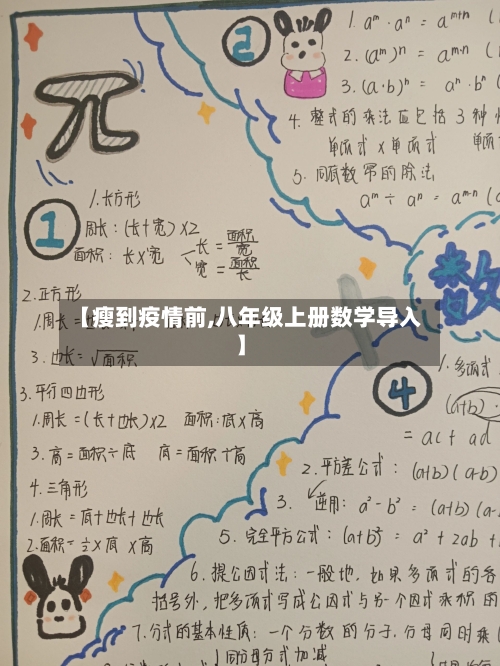 π
1
1.长方形
周长:(长+宽)×2
面积:长×宽
长=面积/宽
宽=面积/长
2.正方形
1.周长
【瘦到疫情前,八年级上册数学导入
】
3.边长=√面积
3.平行四边形
1.周长=(长+边长)×2 面积:底×高
3.高=面积÷底 底=面积÷高
4.三角形
1.周长=底+边长+边长
2.面积=½×底×高
2
1. aᵐ·aⁿ=aᵐ⁺ⁿ
2.(aᵐ)ⁿ=aᵐ·ⁿ
3.(a·b)ⁿ=aⁿ·bⁿ
4.整式的乘法应包括3种
单项式×单项式 单项
5.同底数幂的除法
aᵐ÷aⁿ=aᵐ⁻ⁿ
数
4
1.多项式
(a+b)·
=ac+ad
2.平方差公式:(a+b)(a-b)
3.逆用:a²-b²=(a+b)(a-
5.完全平方公式:(a+b)²=a²+2ab+
6.提公因式法:一般地,如果多项式的各
括号外,把多项式写成公因式与另一个因式乘积的
7.分式的基本性质:一个分数的分子.分母同时乘
同分母分式加减